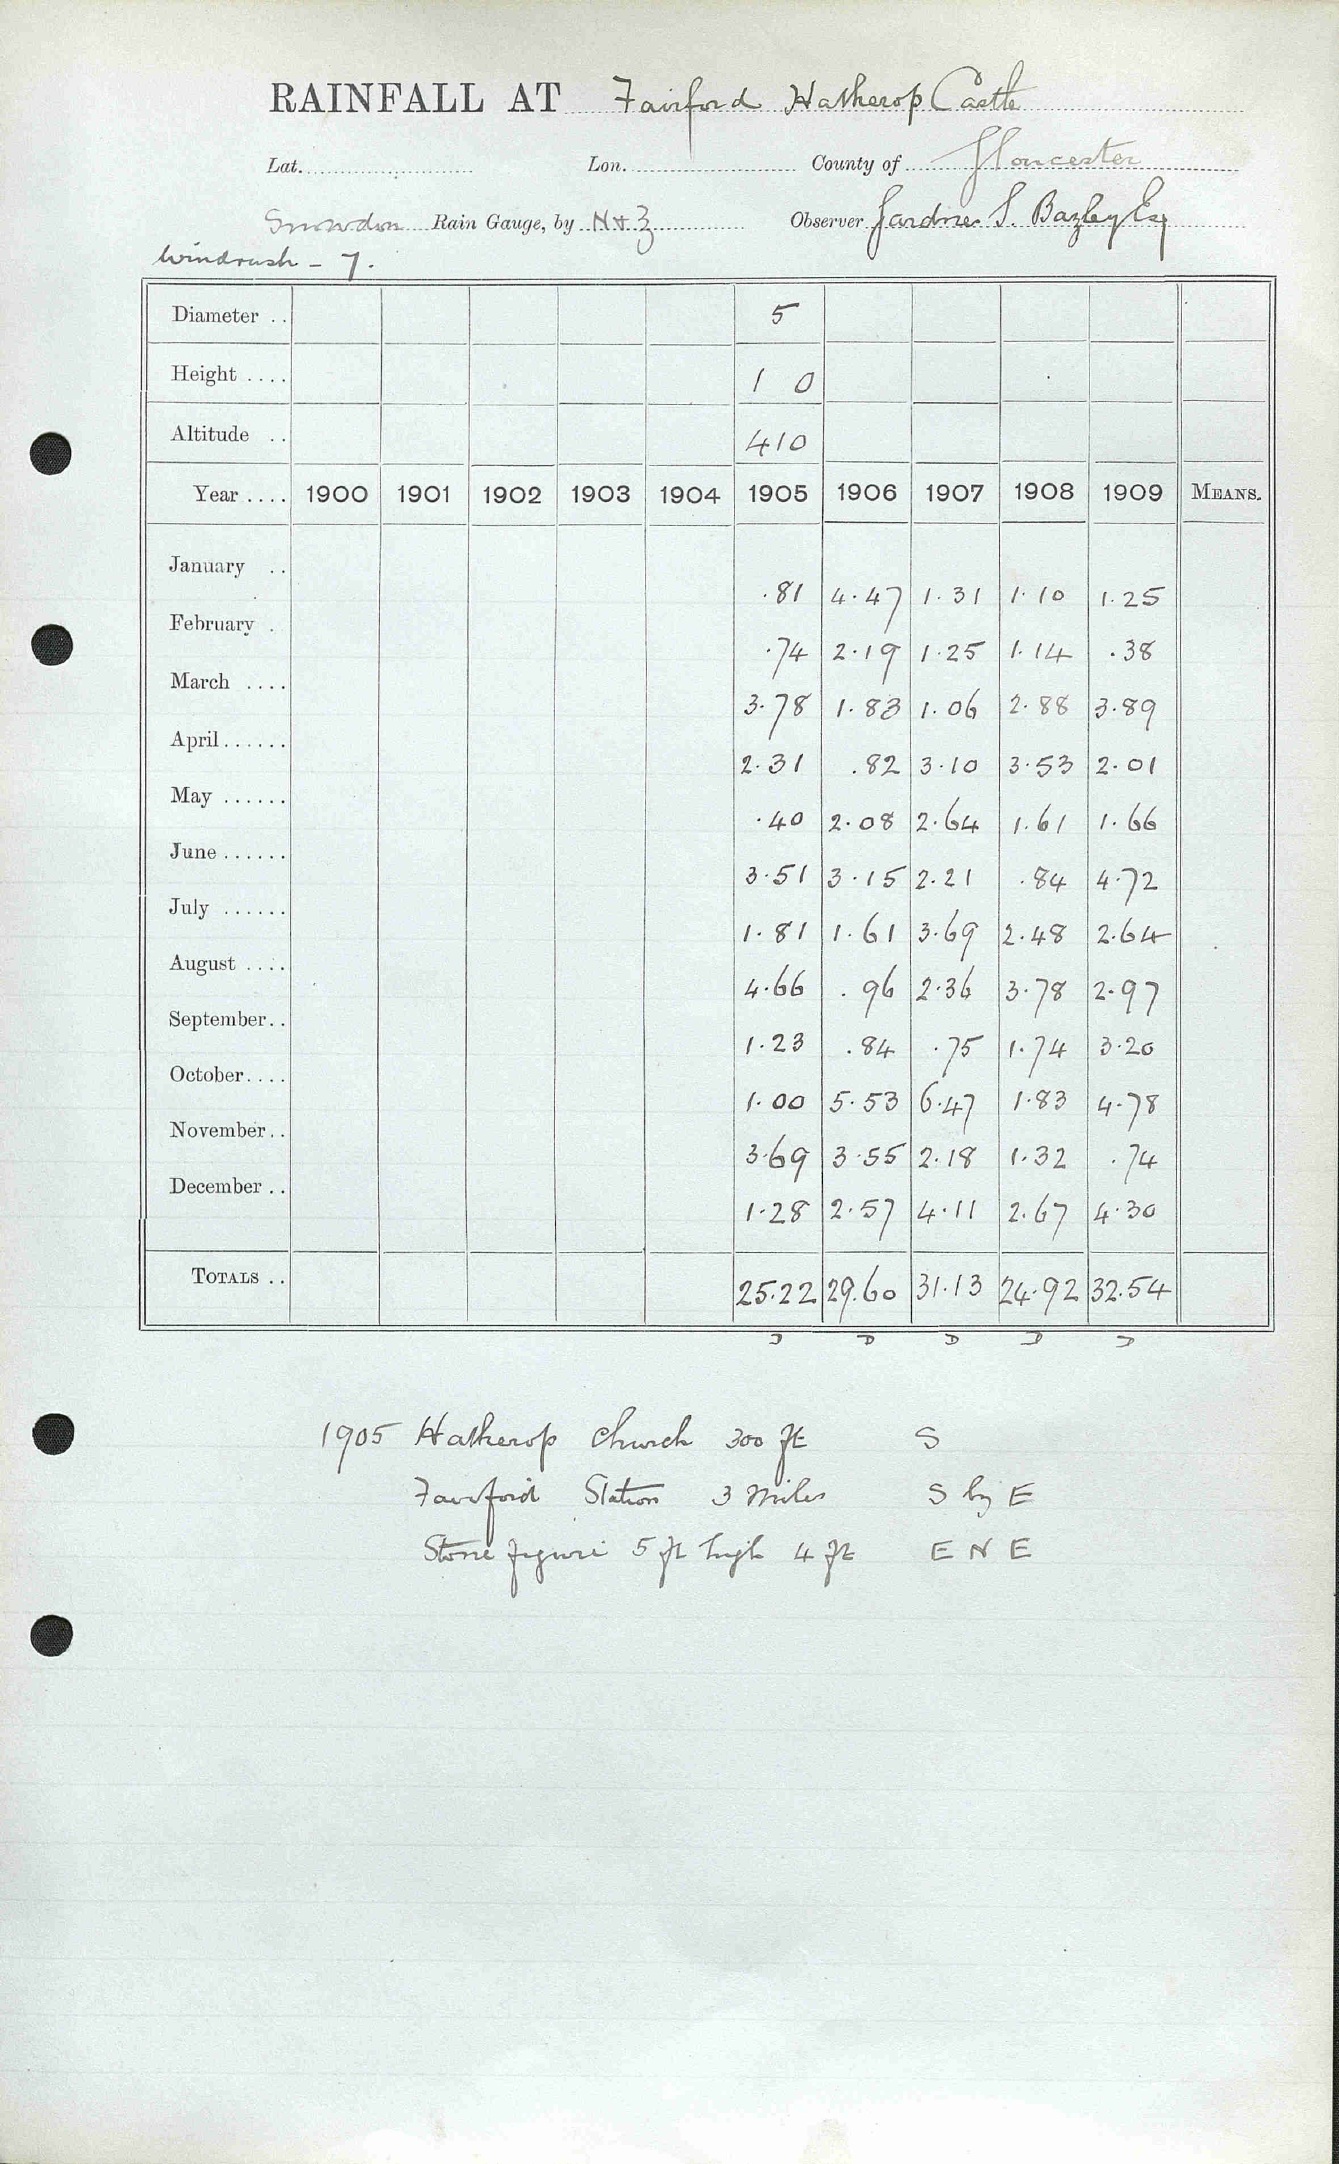 RAINFALL AT Fairford Hatherop Castle
Lat. Lon. County of Gloucester
Snowdon Rain Gauge, by N & Z Observer Gardner S. Bazley Esq
Windrush - 7.
Diameter .. 5
Height .... 1 0
Altitude .. 410
Year .... 1900 1901 1902 1903 1904 1905 1906 1907 1908 1909 MEANS.
January .. .81 4.47 1.31 1.10 1.25
February . .74 2.19 1.25 1.14 .38
March .... 3.78 1.83 1.06 2.88 3.89
April...... 2.31 .82 3.10 3.53 2.01
May ...... .40 2.08 2.64 1.61 1.66
June...... 3.51 3.15 2.21 .84 4.72
July ...... 1.81 1.61 3.69 2.48 2.64
August .... 4.66 .96 2.36 3.78 2.97
September.. 1.23 .84 .75 1.74 3.20
October.... 1.00 5.53 6.47 1.83 4.78
November.. 3.69 3.55 2.18 1.32 .74
December .. 1.28 2.57 4.11 2.67 4.30
TOTALS .. 25.22 29.60 31.13 24.92 32.54
D D D D D
1905 Hatherop Church 300 ft S
Fairford Station 3 Miles S by E
Stone figure 5 ft high 4 ft E N E